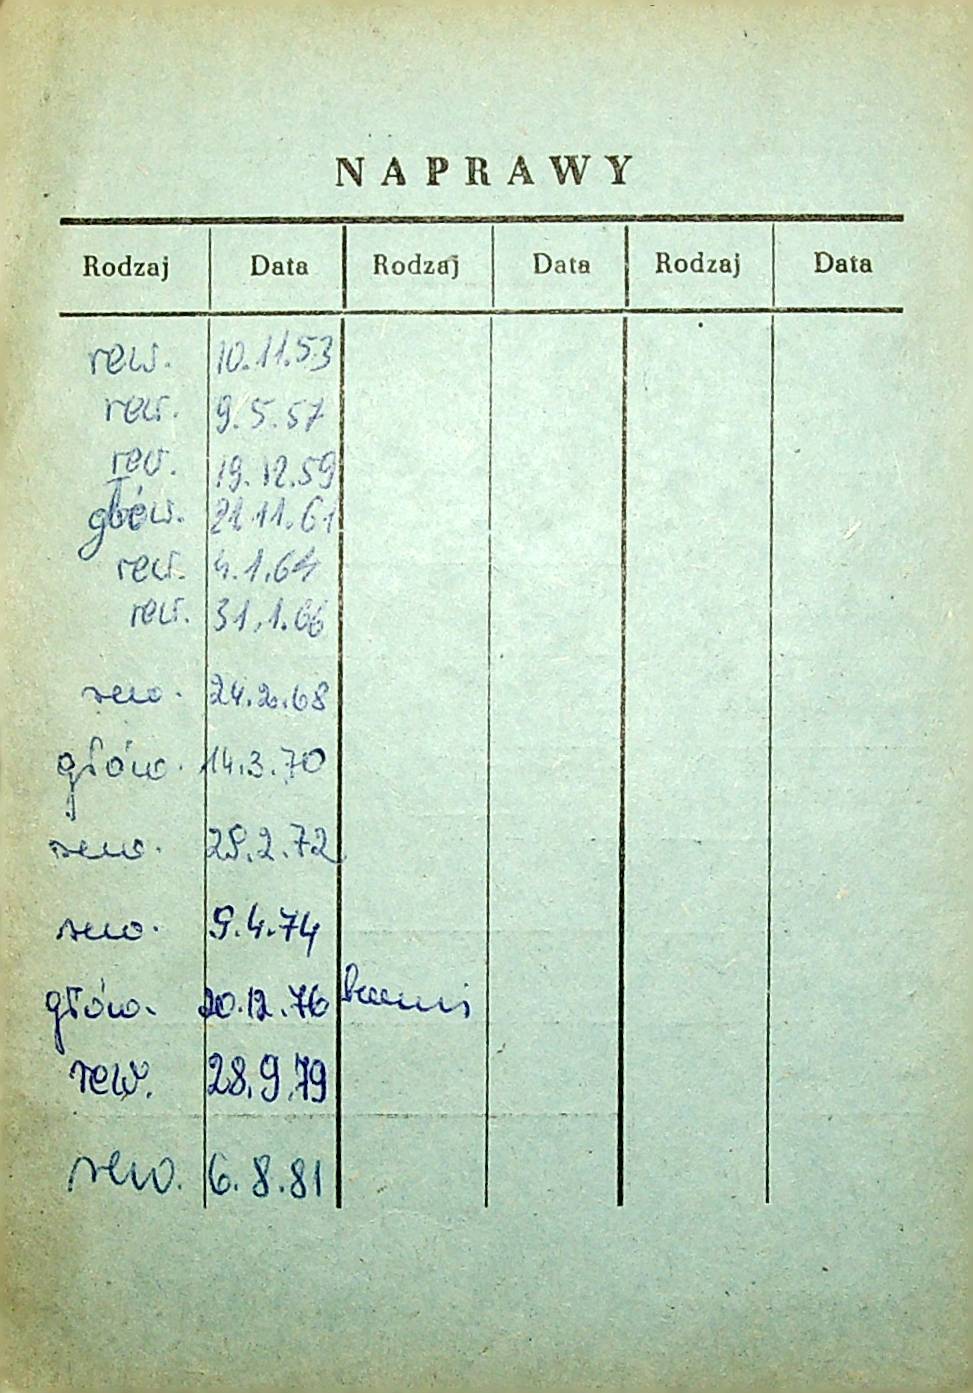 NAPRAWY
Rodzaj Data Rodzaj Data Rodzaj Data
rew. 10.11.53
rew. 9.5.57
rew. 19.12.59
głów. 21.11.61
rew. 4.1.64
rew. 31.1.66
rew. 24.2.68
głów. 14.3.70
rew. 2.72
rew. 9.4.74
głów. 20.12.76
rew. 28.9.79
rew. 6.8.81